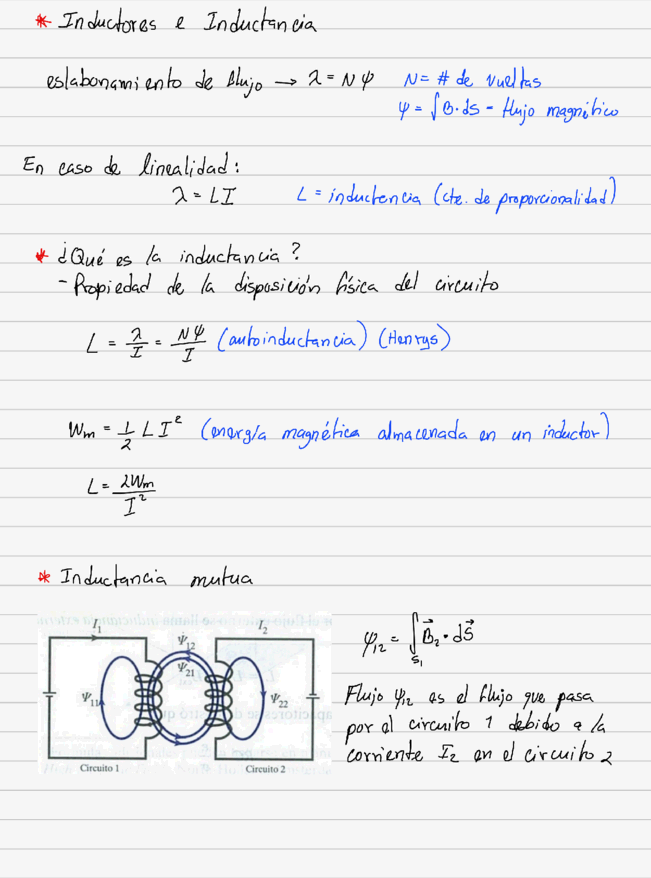 * Inductores e Inductancia
eslabonamiento de flujo → λ = NΨ N = # de vueltas
Ψ = ∫B·dS - flujo magnético
En caso de linealidad:
λ = LI L = inductencia (cte. de proporcionalidad)
* ¿Qué es la inductancia?
- Propiedad de la disposición física del circuito
L = λ/I = NΨ/I (autoinductancia) (Henrys)
Wm = 1/2 L I² (energía magnética almacenada en un inductor)
L = 2Wm/I²
* Inductancia mutua
I₁ I₂
Ψ₁₂
Ψ₂₁
Ψ₁₁ Ψ₂₂
Circuito 1 Circuito 2
Ψ₁₂ = ∫S₁ B⃗₂ · dS⃗
Flujo Ψ₁₂ es el flujo que pasa
por el circuito 1 debido a la
corriente I₂ en el circuito 2